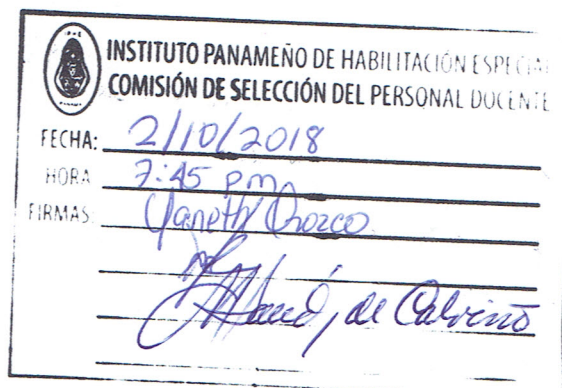 INSTITUTO PANAMEÑO DE HABILITACIÓN ESPECIAL
COMISIÓN DE SELECCIÓN DEL PERSONAL DOCENTE
FECHA: 2/10/2018
HORA 7:45 pm
FIRMAS: Yaneth Orozco
de Calviño